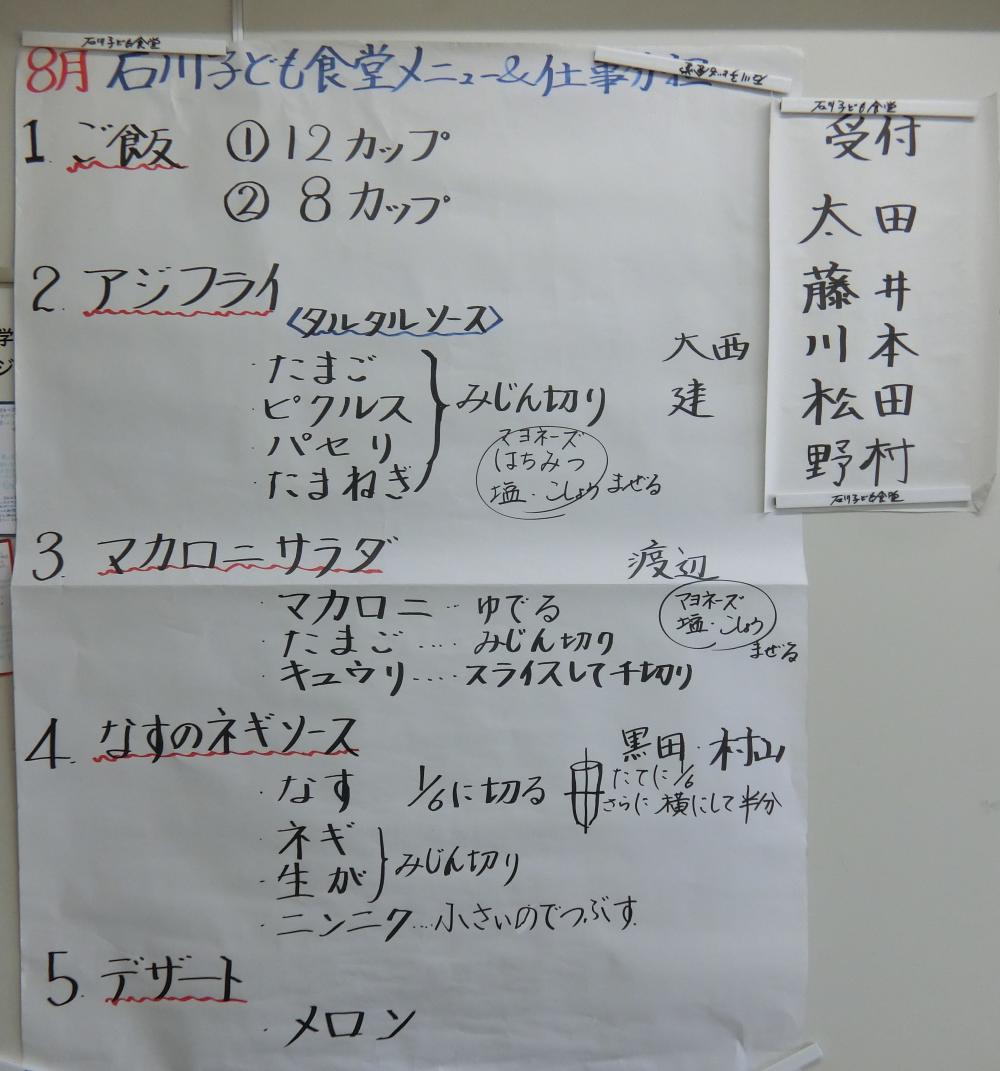 石川子ども食堂
8月 石川子ども食堂メニュー&仕事分担
石川子ども食堂
1. ご飯 ① 12カップ
② 8カップ
2. アジフライ
〈タルタルソース〉
・たまご
・ピクルス
・パセリ
・たまねぎ
みじん切り
マヨネーズ
はちみつ
塩・こしょう まぜる
大西
建
3. マカロニサラダ 渡辺
マカロニ…ゆでる
・たまご‥‥みじん切り
・キュウリ‥‥スライスして千切り
マヨネーズ
塩・こしょう
まぜる
4. なすのネギソース 黒田・村山
・なす 1/6に切る
たてに1/6
さらに横にして半分
・ネギ
・生が
みじん切り
・ニンニク…小さいのでつぶす
5. デザート
・メロン
石川子ども食堂
受付
太田
藤井
川本
松田
野村
石川子ども食堂